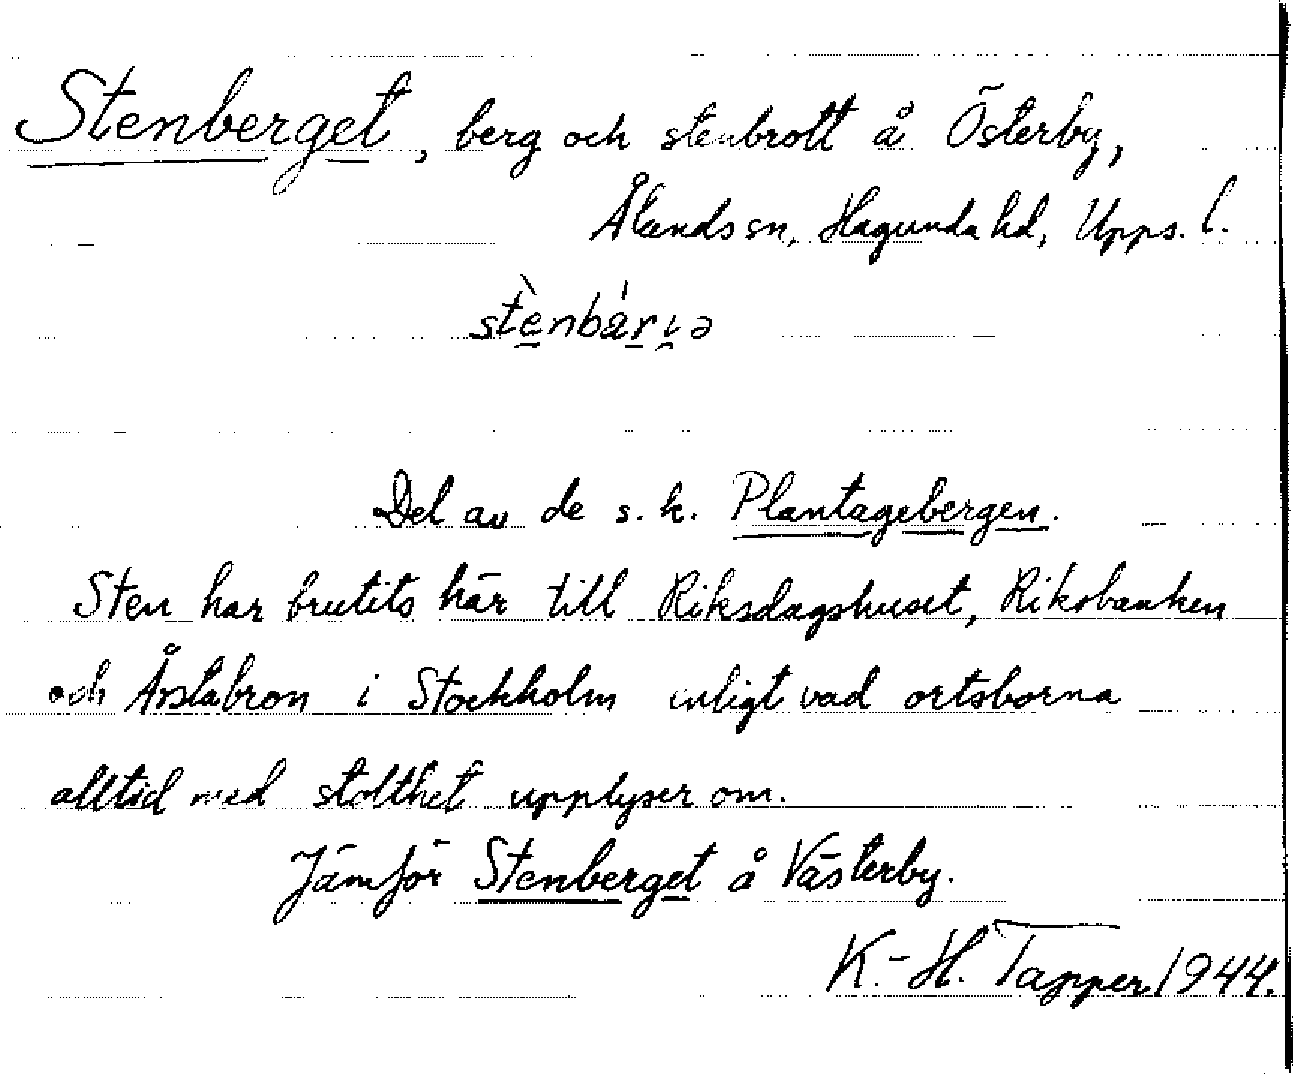 Stenberget, berg och stenbrott å Österby,
Ålands sn, Hagunda hd, Upps. l.
Del av de s. k. Plantagebergen.
Sten har brutits här till Riksdagshuset, Riksbanken
och Årstabron i Stockholm enligt vad ortsborna
alltid med stolthet upplyser om.
Jämför Stenberget å Västerby.
K.-H. Tapper 1944.